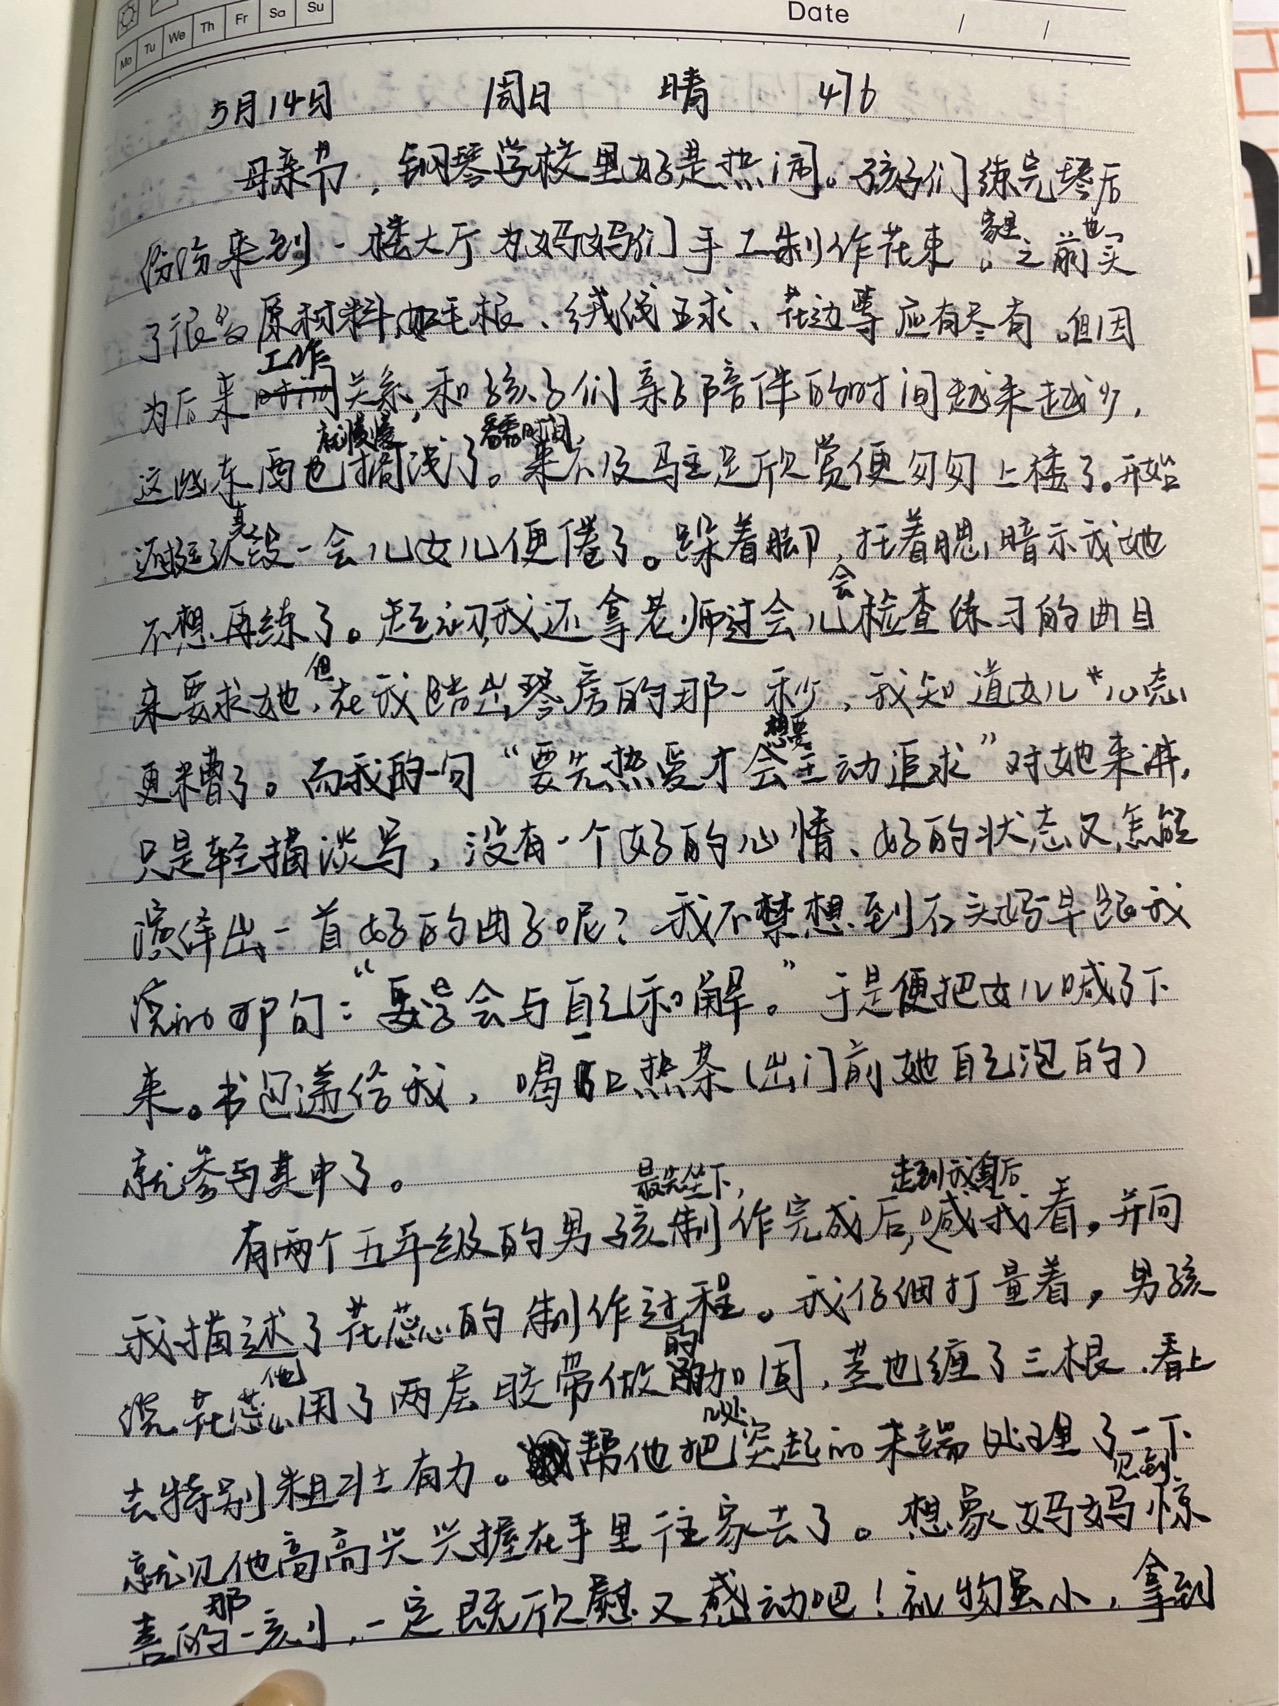 Mo Tu We Th Fr Sa Su
Date / /
5月14日 周日 晴 476
母亲节，钢琴学校里好是热闹。孩子们练完琴后
纷纷来到一楼大厅为妈妈们手工制作花束。家里之前也买
了很多原材料如毛根、绒线球、花边等应有尽有。但因
为后来工作关系，和孩子们亲子陪伴的时间越来越少，
这些东西也就慢慢搁浅了。来不及驻足欣赏便匆匆上楼了。开始
还挺认真，没一会儿女儿便倦了。跺着脚，托着腮，暗示我她
不想再练了。起初我还拿老师过会儿会检查练习的曲目
来要求她，但在我踏出琴房的那一秒，我知道女儿心态
更糟了。而我的一句“要先热爱才会想要主动追求”对她来讲，
只是轻描淡写，没有一个好的心情、好的状态又怎能
演绎出一首好的曲子呢？我不禁想到石头妈早起我
说的那句：“要学会与自己和解。”于是便把女儿喊了下
来。书包递给我，喝口热茶（出门前她自己泡的）
就参与其中了。
有两个五年级的男孩最先坐下，制作完成后，走到我身后喊我看。并向
我描述了花蕊的制作过程。我仔细打量着，男孩
说花蕊他用了两层胶带做的加固，茎也缠了三根，看上
去特别粗壮有力。帮他把几处突起的末端处理了一下
就见他高高兴兴握在手里往家去了。想象妈妈见到惊
喜的那一刻，一定既欣慰又感动吧！礼物虽小，拿到